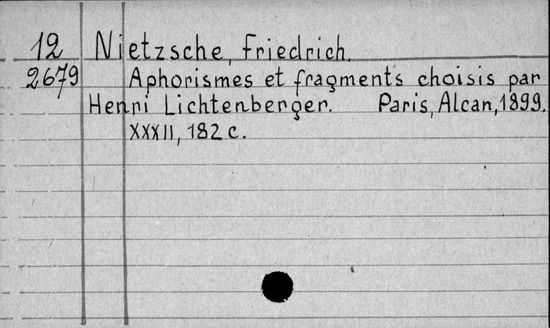 12 Nietzsche, Friedrich.
2679 Aphorismes et fragments choisis par
Henri Lichtenberger. Paris, Alcan, 1899.
XXXII, 182 c.